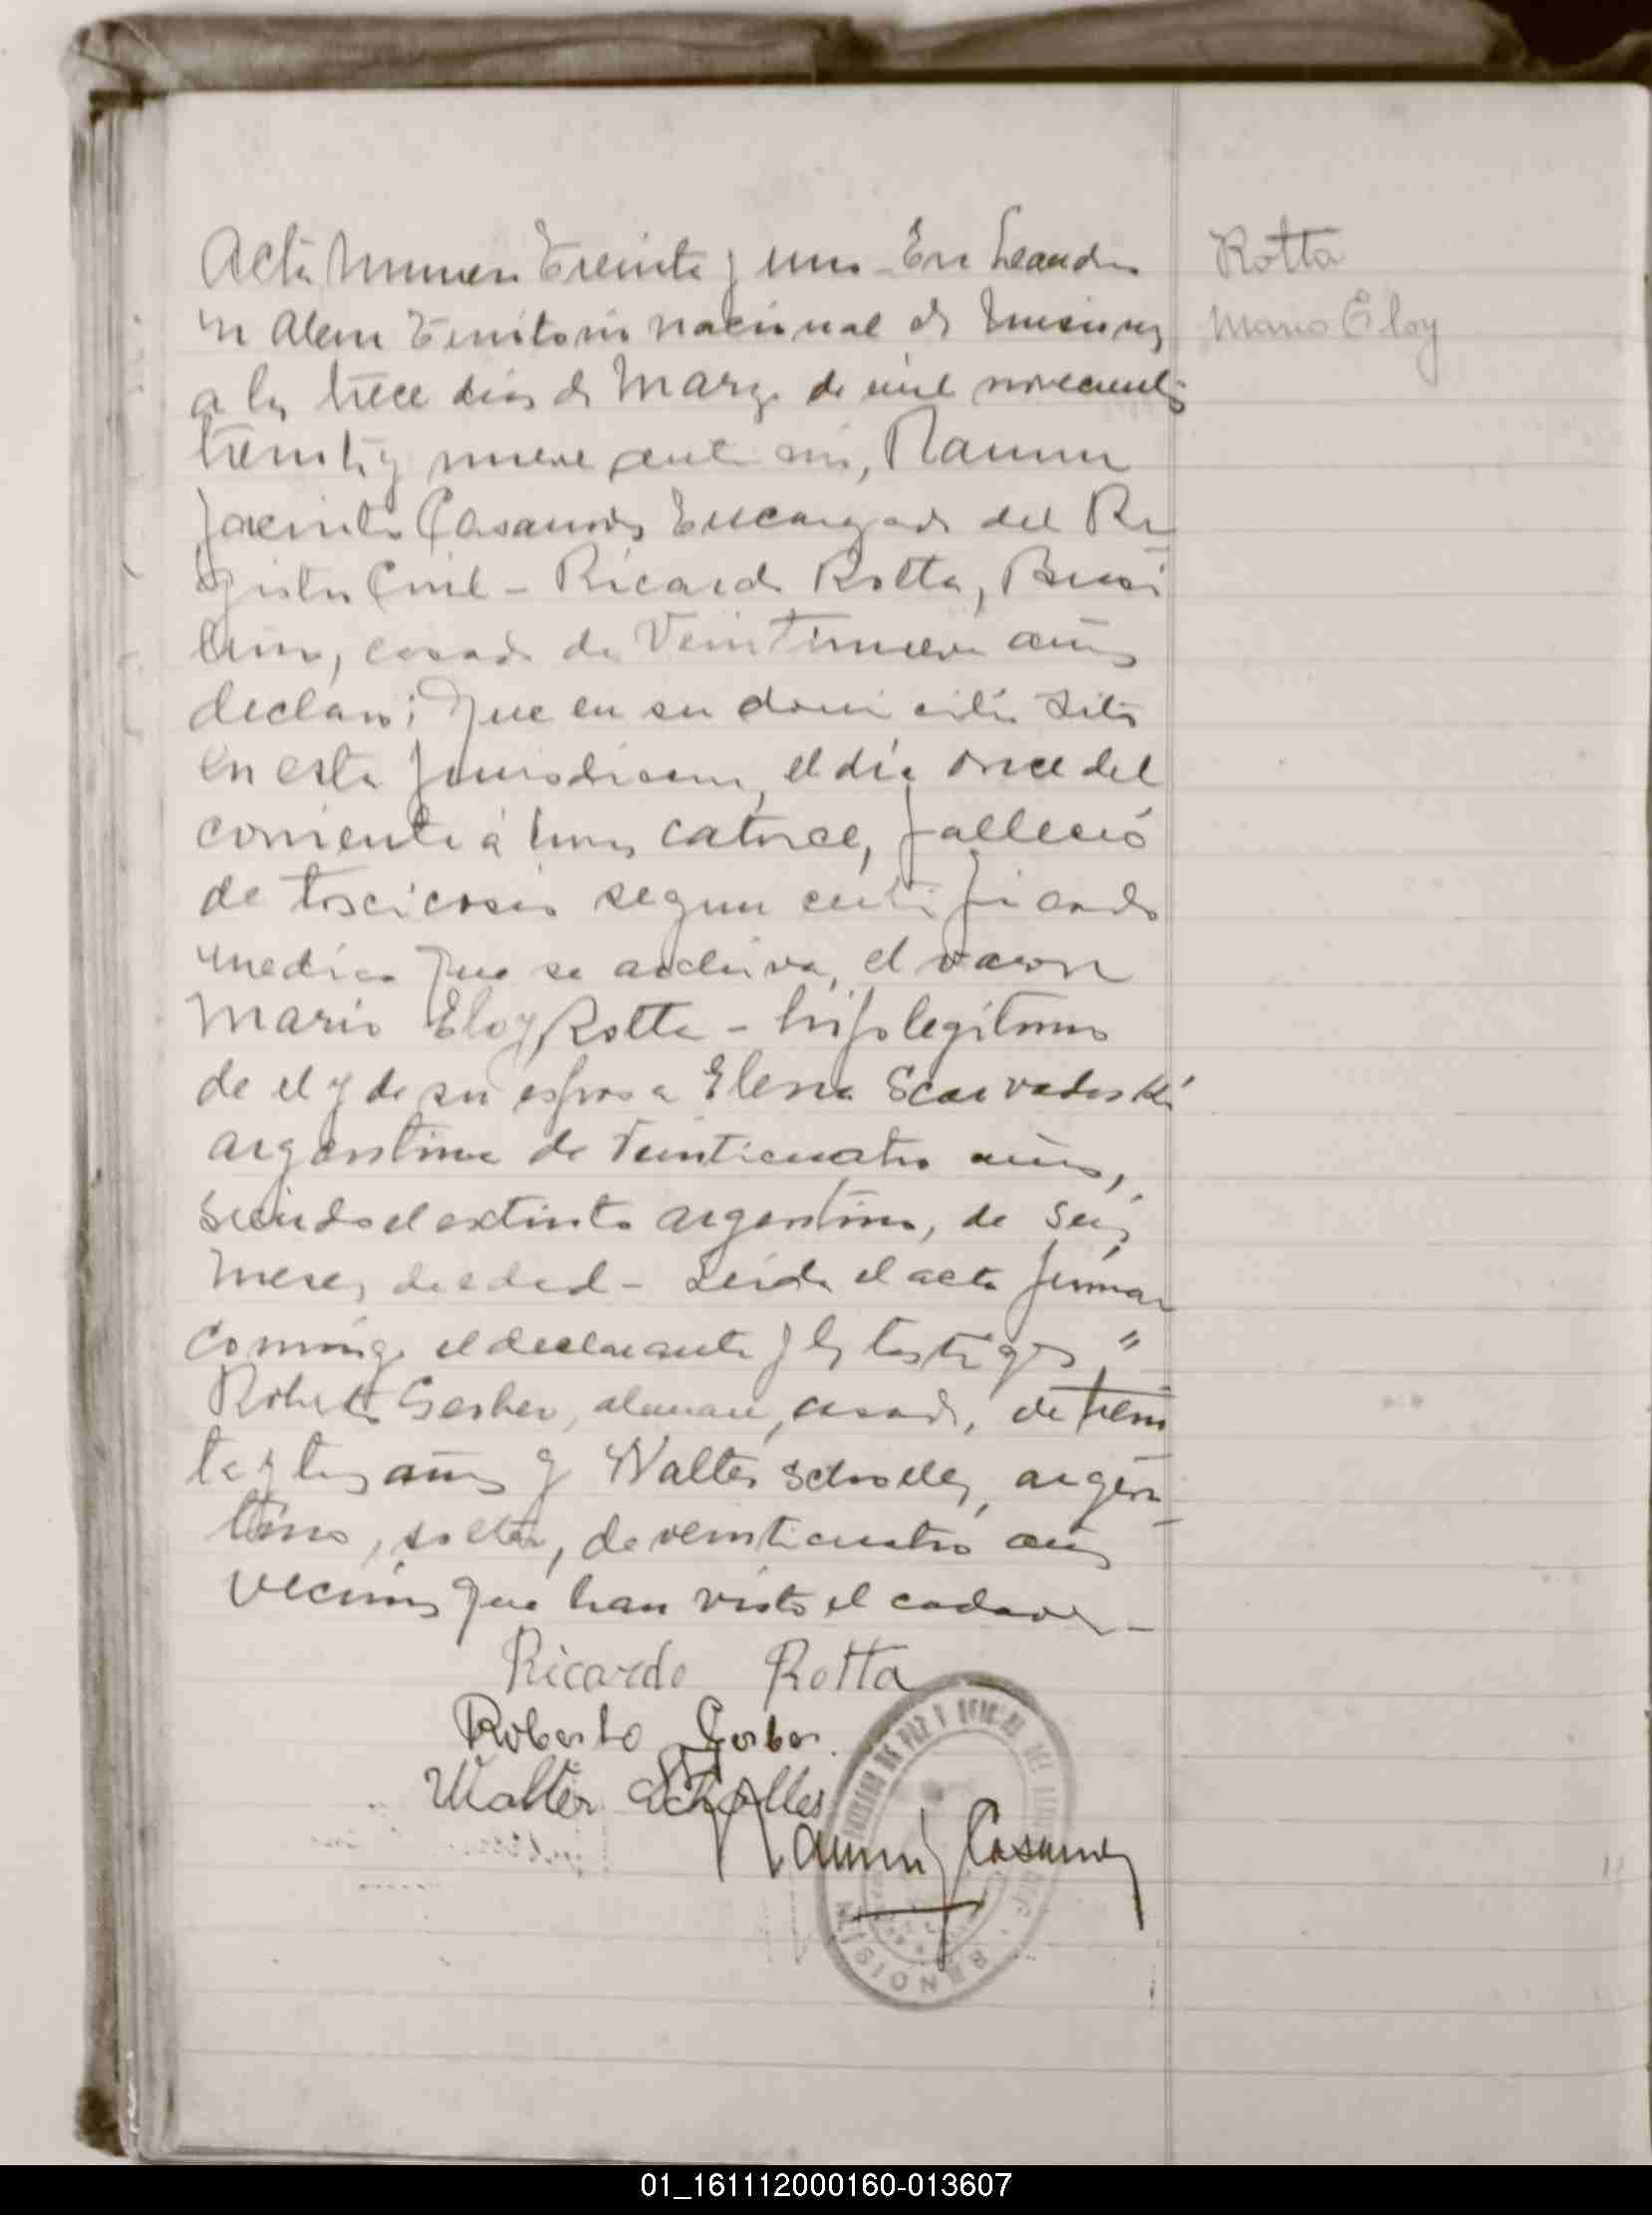 Acta Numero Treinta y uno - En Leandro
N Alem Territorio nacional de Misiones
a los trece dias de Marzo de mil novecientos
treinta y nueve ante mi, Ramon
Jacinto Casanova Encargado del Re
gistro Civil - Ricardo Rotta, Brasi
lero, casado de Veintinueve años
declaro; Que en su domicilio sito
en esta Jurisdiccion, el día once del
corriente á horas catorce, falleció
de toscicosis segun certificado
medico que se archiva, el varon
Mario Eloy Rotta - hijo legitimo
de el y de su esposa Elena
argentina de veinticuatro años,
siendo el extinto argentino, de seis
meses de edad - Leida el acta firman
conmigo el declarante y los testigos "
Roberto Gerber, aleman, casado, de trein
ta y tres años y Walter Scholles, argen-
tino, soltero, de veinticuatro años
vecinos que han visto el cadaver -
Ricardo Rotta
Roberto Gerber.
Walter Scholles
Ramon J Casanova
Rotta
Mario Eloy
JUZGADO DE PAZ Y OFICINA DEL
MISIONES
01_161112000160-013607